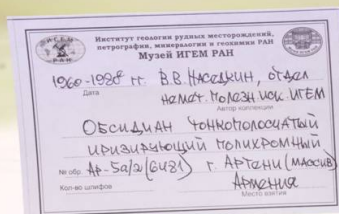 Институт геологии рудных месторождений,
петрографии, минералогии и геохимии РАН
Музей ИГЕМ РАН
ИГЕМ
РАН
1960-1980 гг. В.В. Наседкин, отдел
Дата
немет. полезн иск. ИГЕМ
Автор коллекции
Обсидиан тонкополосчатый
иризирующий полихромный
№ обр. Ар-5а/2(6481) г. Артени (массив)
Кол-во шлифов Армения
Место взятия